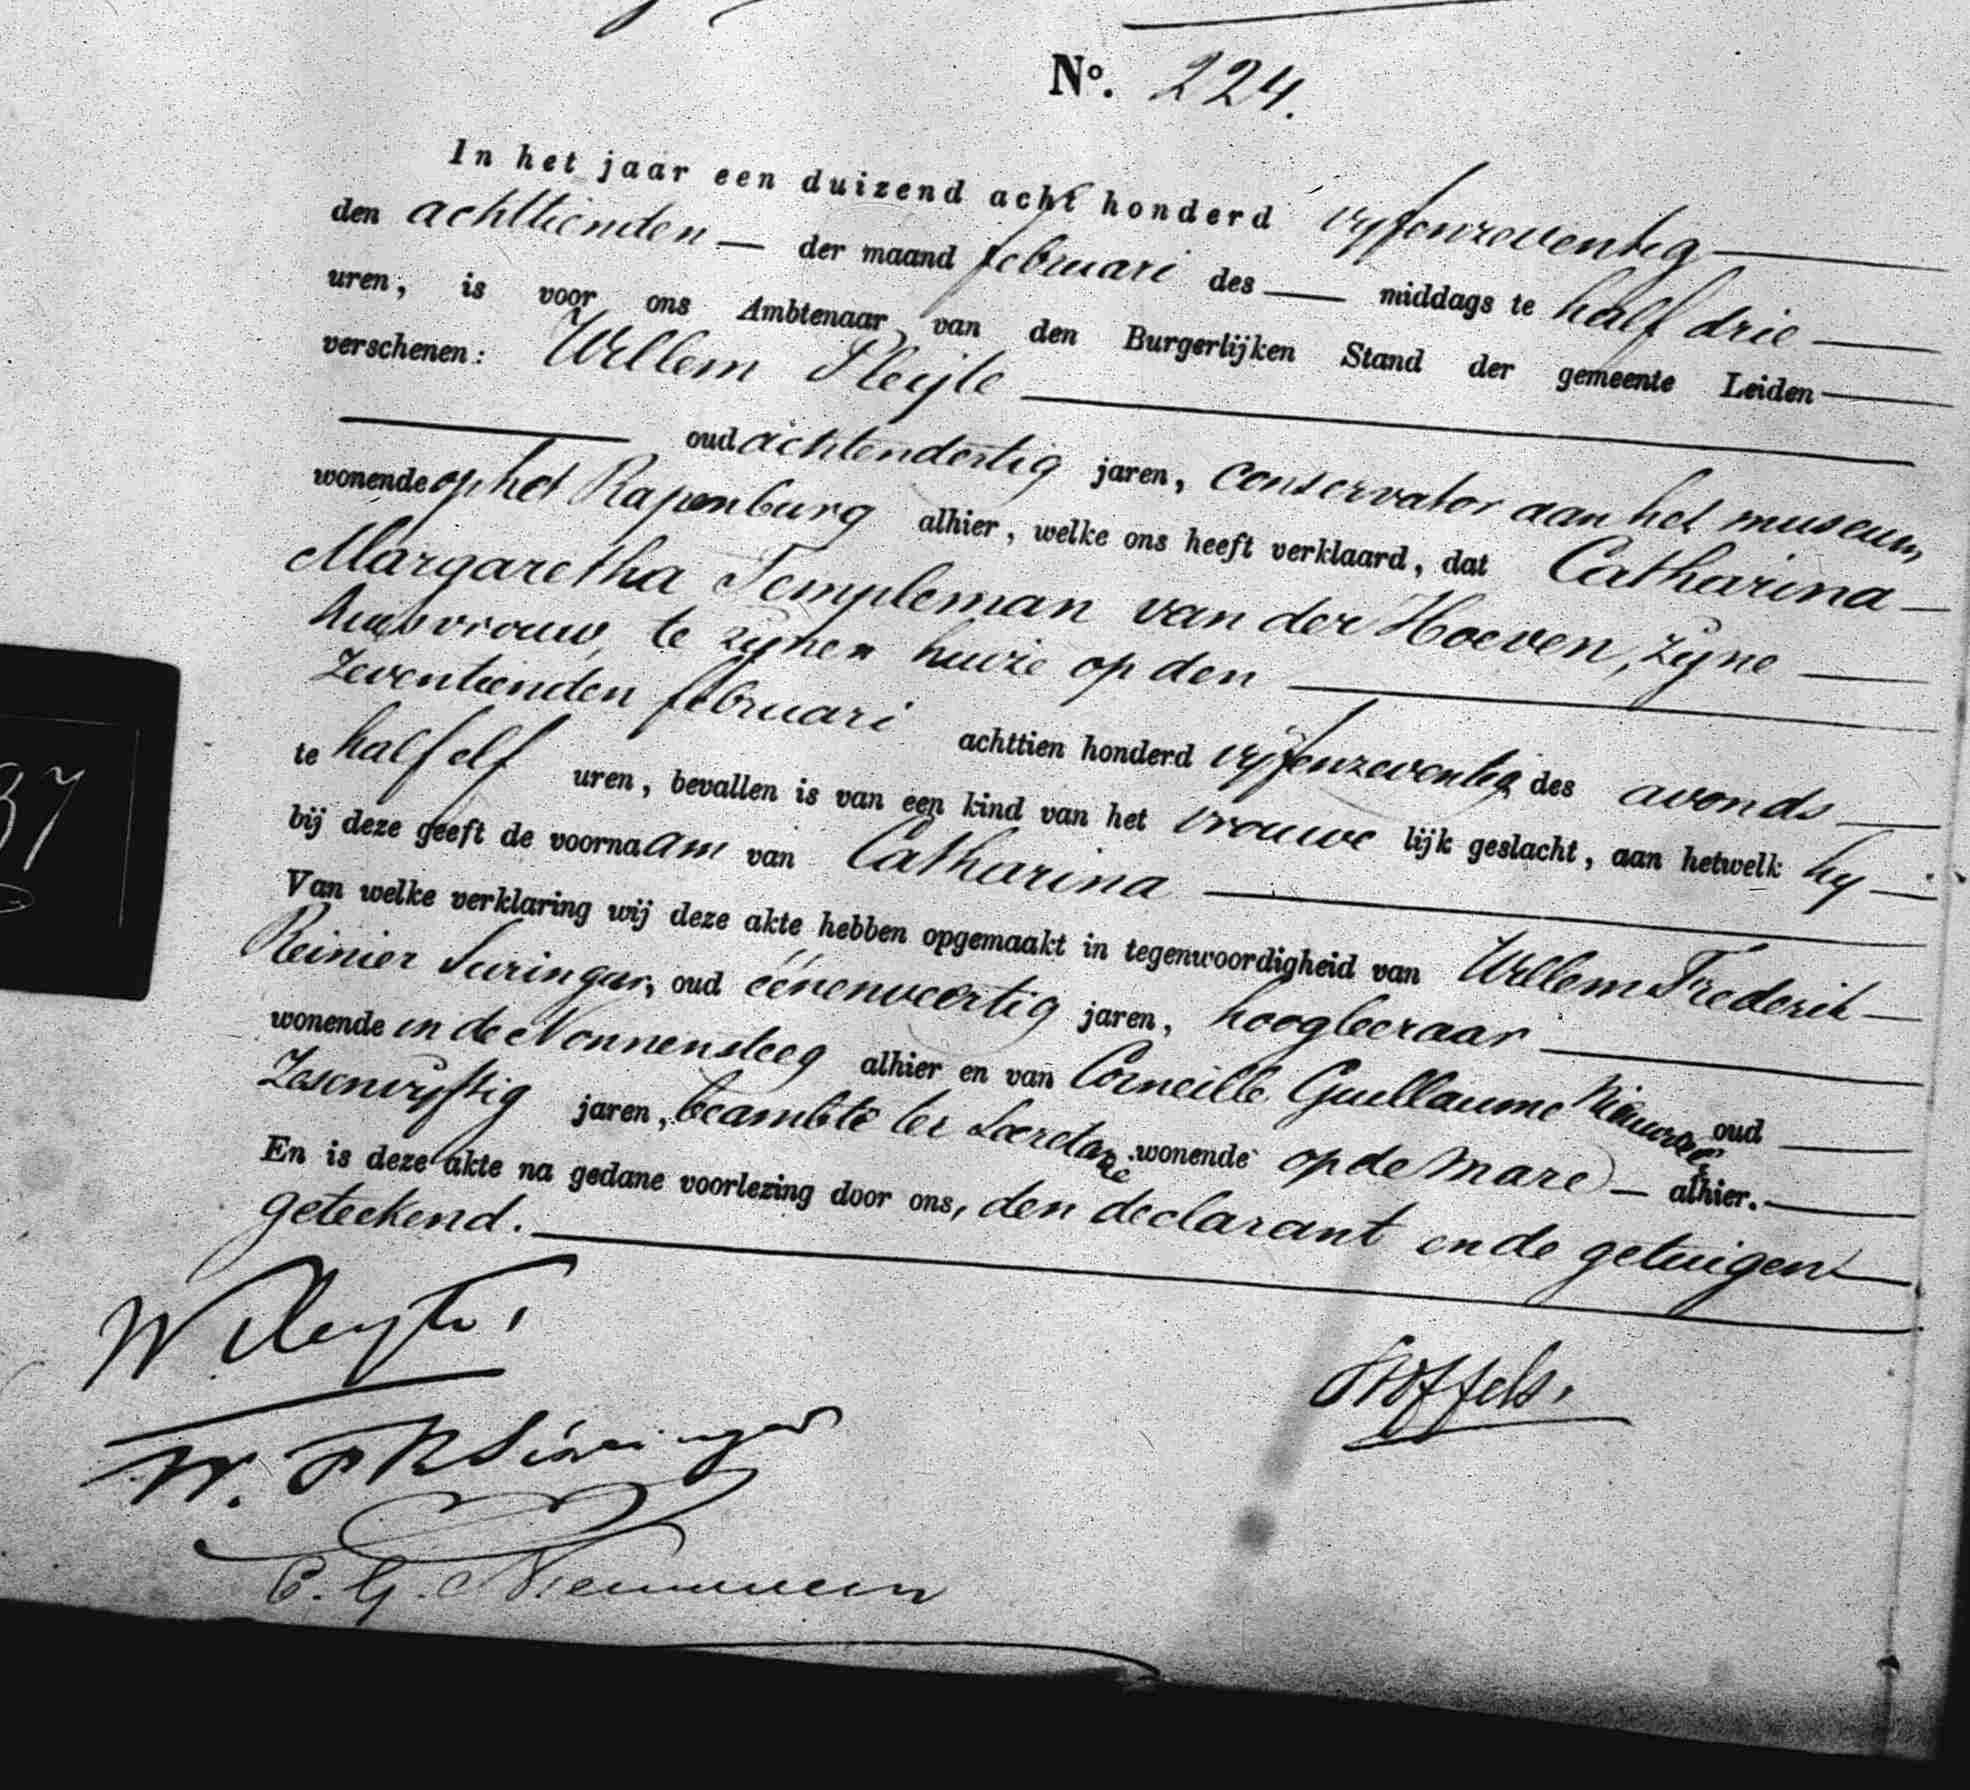 No. 224.
In het jaar een duizend acht honderd vyfenzeventig
den achttienden der maand februari des middags te half drie
uren, is voor ons Ambtenaar van den Burgerlijken Stand der gemeente Leiden
verschenen: Willem Pleijte
oud achtendertig jaren, conservator aan het museum,
wonende op het Rapenburg alhier, welke ons heeft verklaard, dat Catharina
Margaretha Templeman van der Hoeven, zyne
huisvrouw, te zynen huize op den
zeventienden februari achttien honderd vyfenzeventig des avonds
te half elf uren, bevallen is van een kind van het vrouwelijk geslacht, aan hetwelk hy
bij deze geeft de voornaam van Catharina
Van welke verklaring wij deze akte hebben opgemaakt in tegenwoordigheid van Willem Frederik
Reinier Suringar, oud éénenveertig jaren, hoogleeraar
wonende in de Nonnensteeg alhier en van Corneille Guillaume oud
zesenvyftig jaren, beambte ter secretarie wonende op de Mare alhier.
En is deze akte na gedane voorlezing door ons, den declarant en de getuigen
geteekend.
W. Pleyte.
Stoffels.
W. F. R. Suringar
C. G.
37